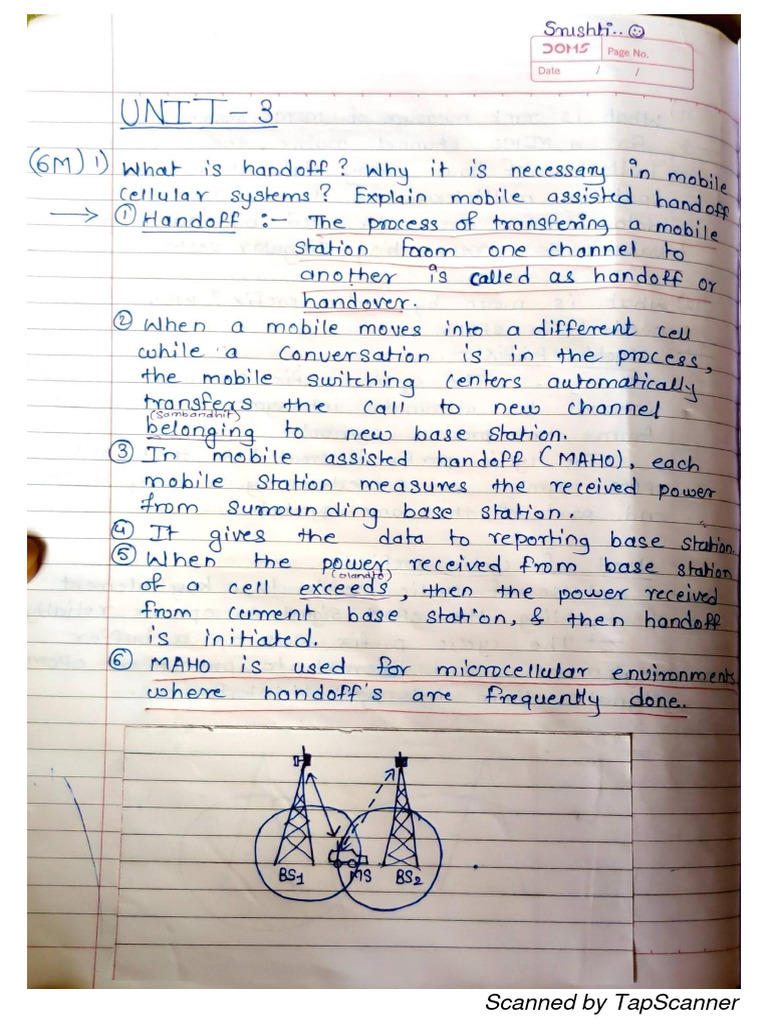 Srushti..☺
DOMS
Page No.
Date / /
UNIT-3
(6M) 1) What is handoff? Why it is necessary in mobile
cellular systems? Explain mobile assisted handoff
→ ① Handoff :- The process of transfering a mobile
station from one channel to
another is called as handoff or
handover.
② When a mobile moves into a different cell
while a conversation is in the process,
the mobile switching centers automatically
transfers the call to new channel
(Sambandhit)
belonging to new base station.
③ In mobile assisted handoff (MAHO), each
mobile station measures the received power
from surrounding base station.
④ It gives the data to reporting base station.
⑤ When the power received from base station
(olandto)
of a cell exceeds, then the power received
from current base station, & then handoff
is initiated.
⑥ MAHO is used for microcellular environments
where handoff's are frequently done.
BS1 MS BS2
Scanned by TapScanner